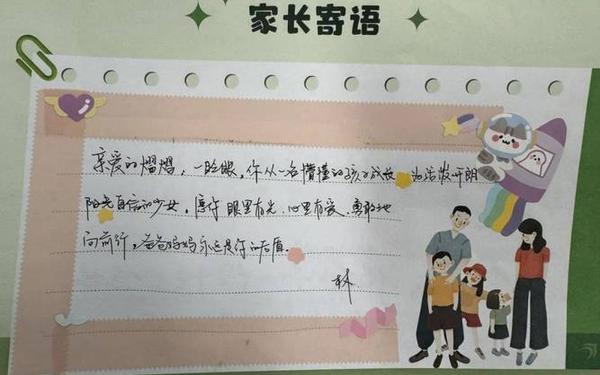 家长寄语
亲爱的熠熠，一眨眼，你从一名懵懂的孩子成长为活泼开朗
阳光自信的少女，愿你眼里有光、心里有爱、勇敢地
向前行，爸爸妈妈永远是你的后盾。
林